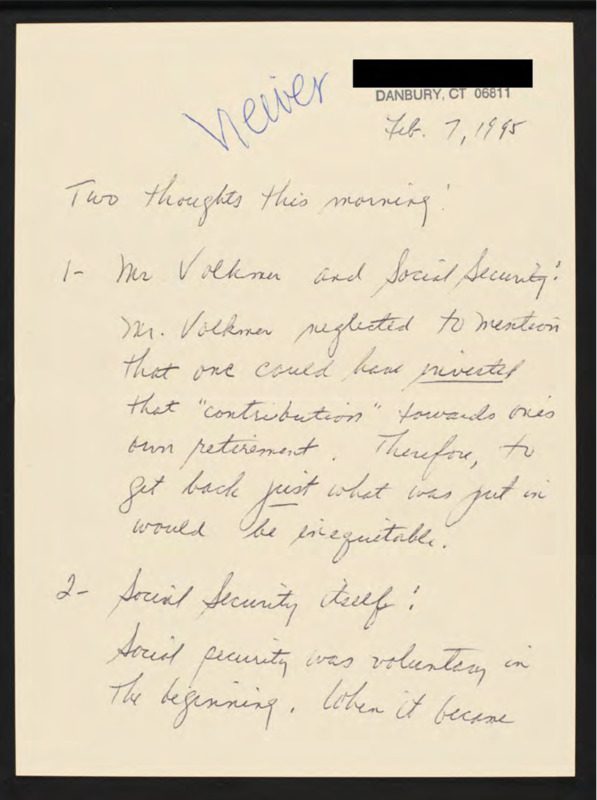 Viewer
DANBURY, CT 06811
Feb. 7, 1995
Two thoughts this morning:
1- Mr Volkmer and Social Security:
Mr. Volkmer neglected to mention
that one could have invested
that "contribution" towards one's
own retirement. Therefore, to
get back just what was put in
would be inequitable.
2- Social Security itself:
Social security was voluntary in
the beginning. When it became